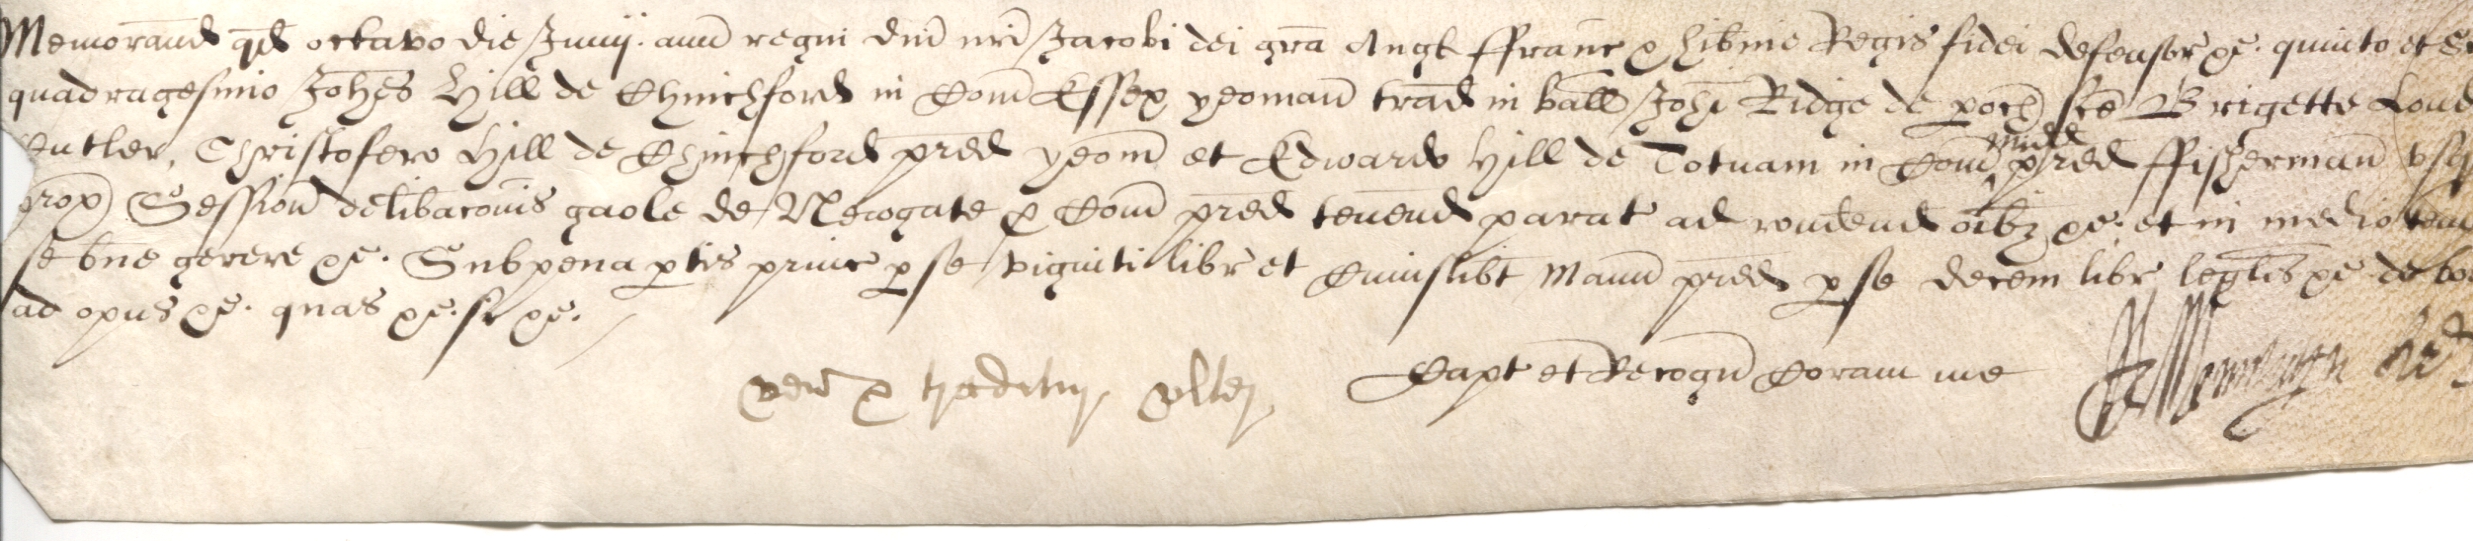 Memorand qd octavo die Junij. ann regni dni nri Jacobi dei gra Angl ffranc & hibnie Regis fidei defensor &c. quinto et
quadragesimo Johes Hill de Chinchford in Com Essex yeoman trad in ball Johi Ridge de poch sce Brigette Lond
Cutler, Christofero Hill de Chinchford pred yeom et Edwardo Hill de Totnam in Com Midd pred ffisherman vsq
prox Session delibaconis gaole de Newgate p Com pred tenend parat ad rondend oibz &c. et in medio tem
se bene gerere &c. Sub pena ptis princ p se viginti libr et Cuiuslibt Manu pred p se decem libr leglis &c de bo
ad opus &c. quas &c. si &c.
Capt et Recogn Coram me